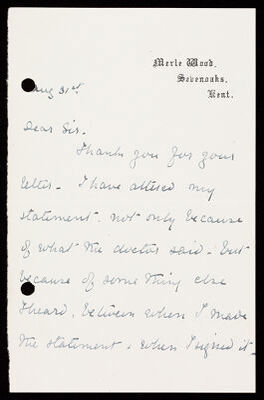 Merle Wood,
Sevenoaks,
Kent.
Aug 31st
Dear Sir.
Thank you for your
letter - I have altered my
statement. not only because
of what the doctor said - but
because of some thing else
I heard, between when I made
the statement & when I signed it -